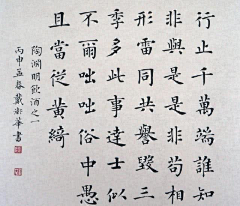 行止千萬端誰知
非與是是非苟相
形雷同共譽毀三
季多此事達士似
不爾咄咄俗中愚
且當從黃綺
陶淵明飲酒之一
丙申孟春戴華書